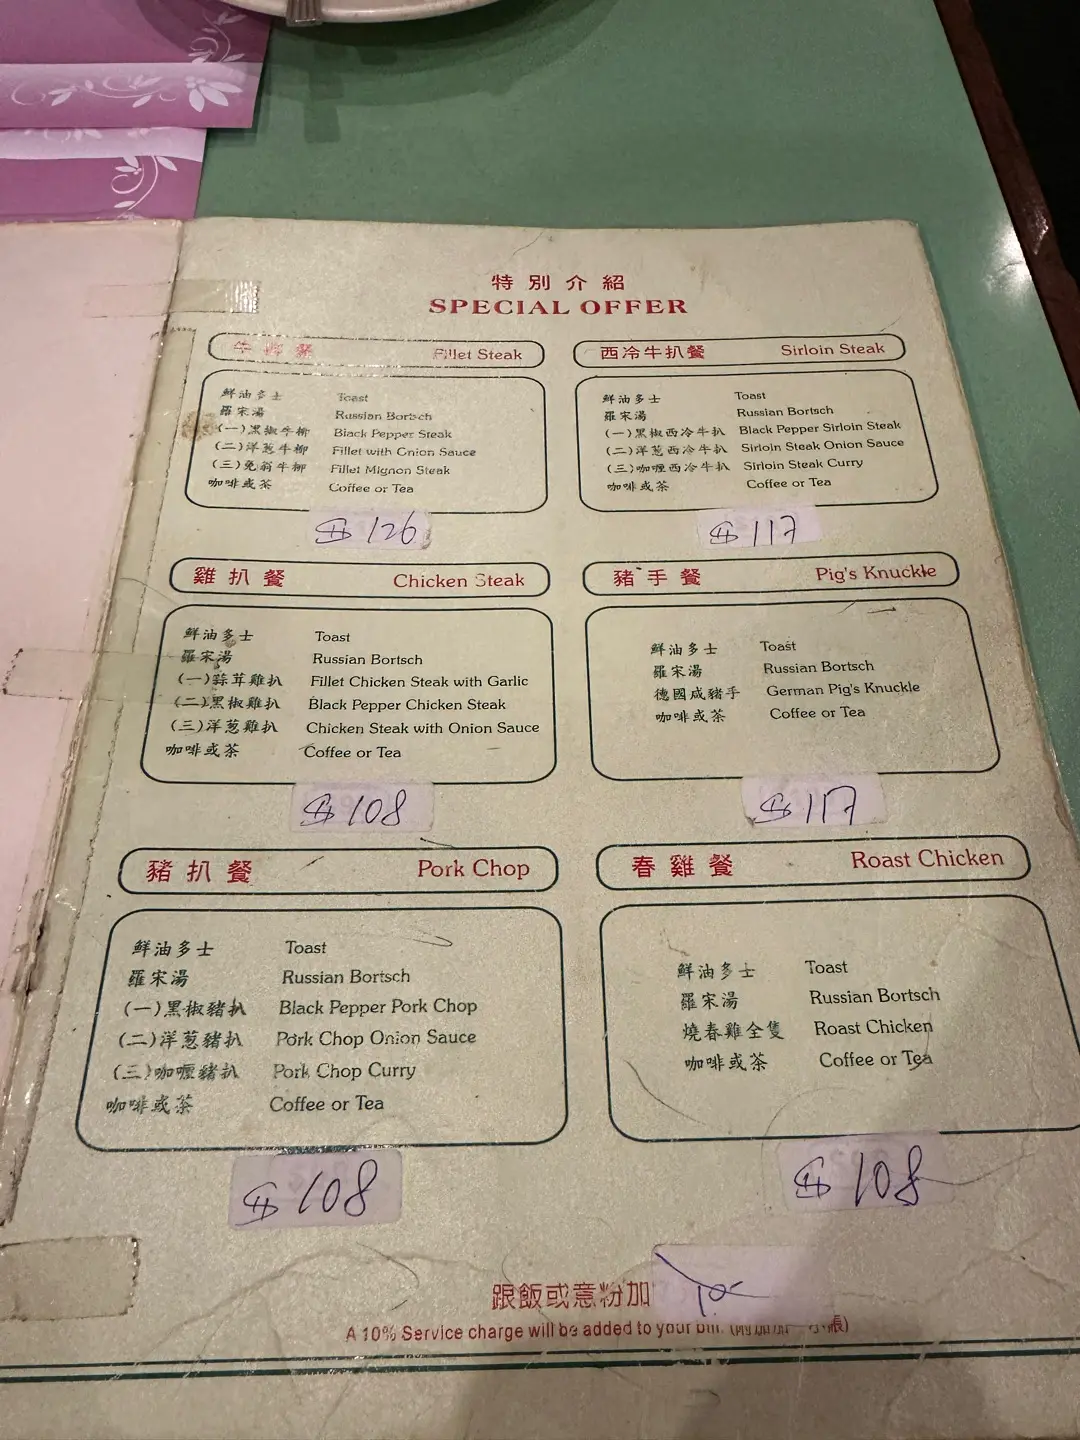 特別介紹
SPECIAL OFFER
牛柳餐 Fillet Steak
鮮油多士 Toast
羅宋湯 Russian Bortsch
(一)黑椒牛柳 Black Pepper Steak
(二)洋葱牛柳 Fillet with Onion Sauce
(三)免翁牛柳 Fillet Mignon Steak
咖啡或茶 Coffee or Tea
$126
西冷牛扒餐 Sirloin Steak
鮮油多士 Toast
羅宋湯 Russian Bortsch
(一)黑椒西冷牛扒 Black Pepper Sirloin Steak
(二)洋葱西冷牛扒 Sirloin Steak Onion Sauce
(三)咖喱西冷牛扒 Sirloin Steak Curry
咖啡或茶 Coffee or Tea
$117
雞扒餐 Chicken Steak
鮮油多士 Toast
羅宋湯 Russian Bortsch
(一)蒜茸雞扒 Fillet Chicken Steak with Garlic
(二)黑椒雞扒 Black Pepper Chicken Steak
(三)洋葱雞扒 Chicken Steak with Onion Sauce
咖啡或茶 Coffee or Tea
$108
豬手餐 Pig's Knuckle
鮮油多士 Toast
羅宋湯 Russian Bortsch
德國咸豬手 German Pig's Knuckle
咖啡或茶 Coffee or Tea
$117
豬扒餐 Pork Chop
鮮油多士 Toast
羅宋湯 Russian Bortsch
(一)黑椒豬扒 Black Pepper Pork Chop
(二)洋葱豬扒 Pork Chop Onion Sauce
(三)咖喱豬扒 Pork Chop Curry
咖啡或茶 Coffee or Tea
$108
春雞餐 Roast Chicken
鮮油多士 Toast
羅宋湯 Russian Bortsch
燒春雞全隻 Roast Chicken
咖啡或茶 Coffee or Tea
$108
跟飯或意粉加
A 10% Service charge will be added to your bill.